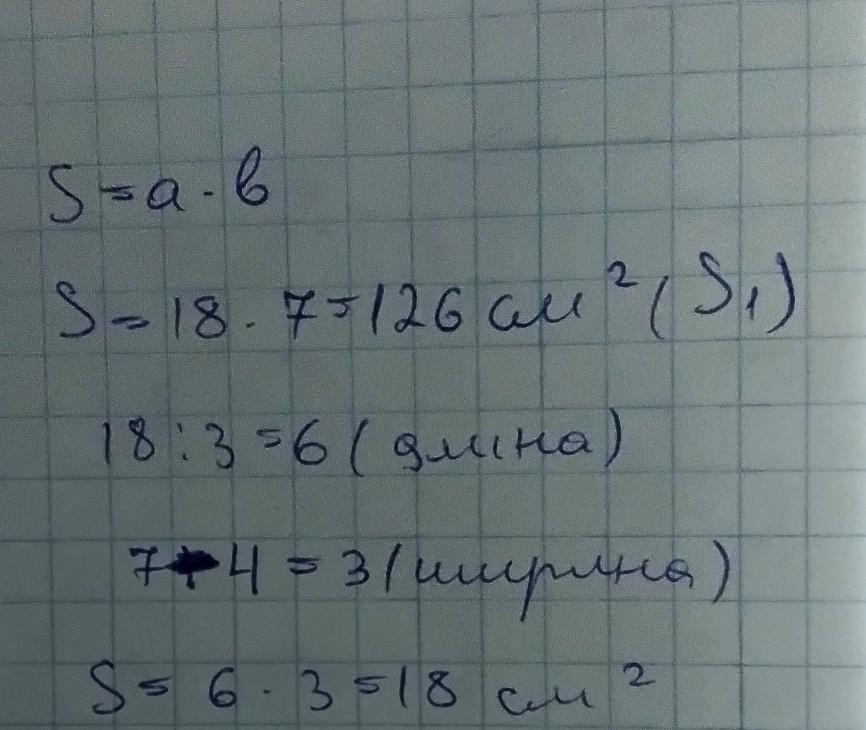 S = a · b
S = 18 · 7 = 126 см² (S₁)
18 : 3 = 6 (длина)
7 - 4 = 3 (ширина)
S = 6 · 3 = 18 см²